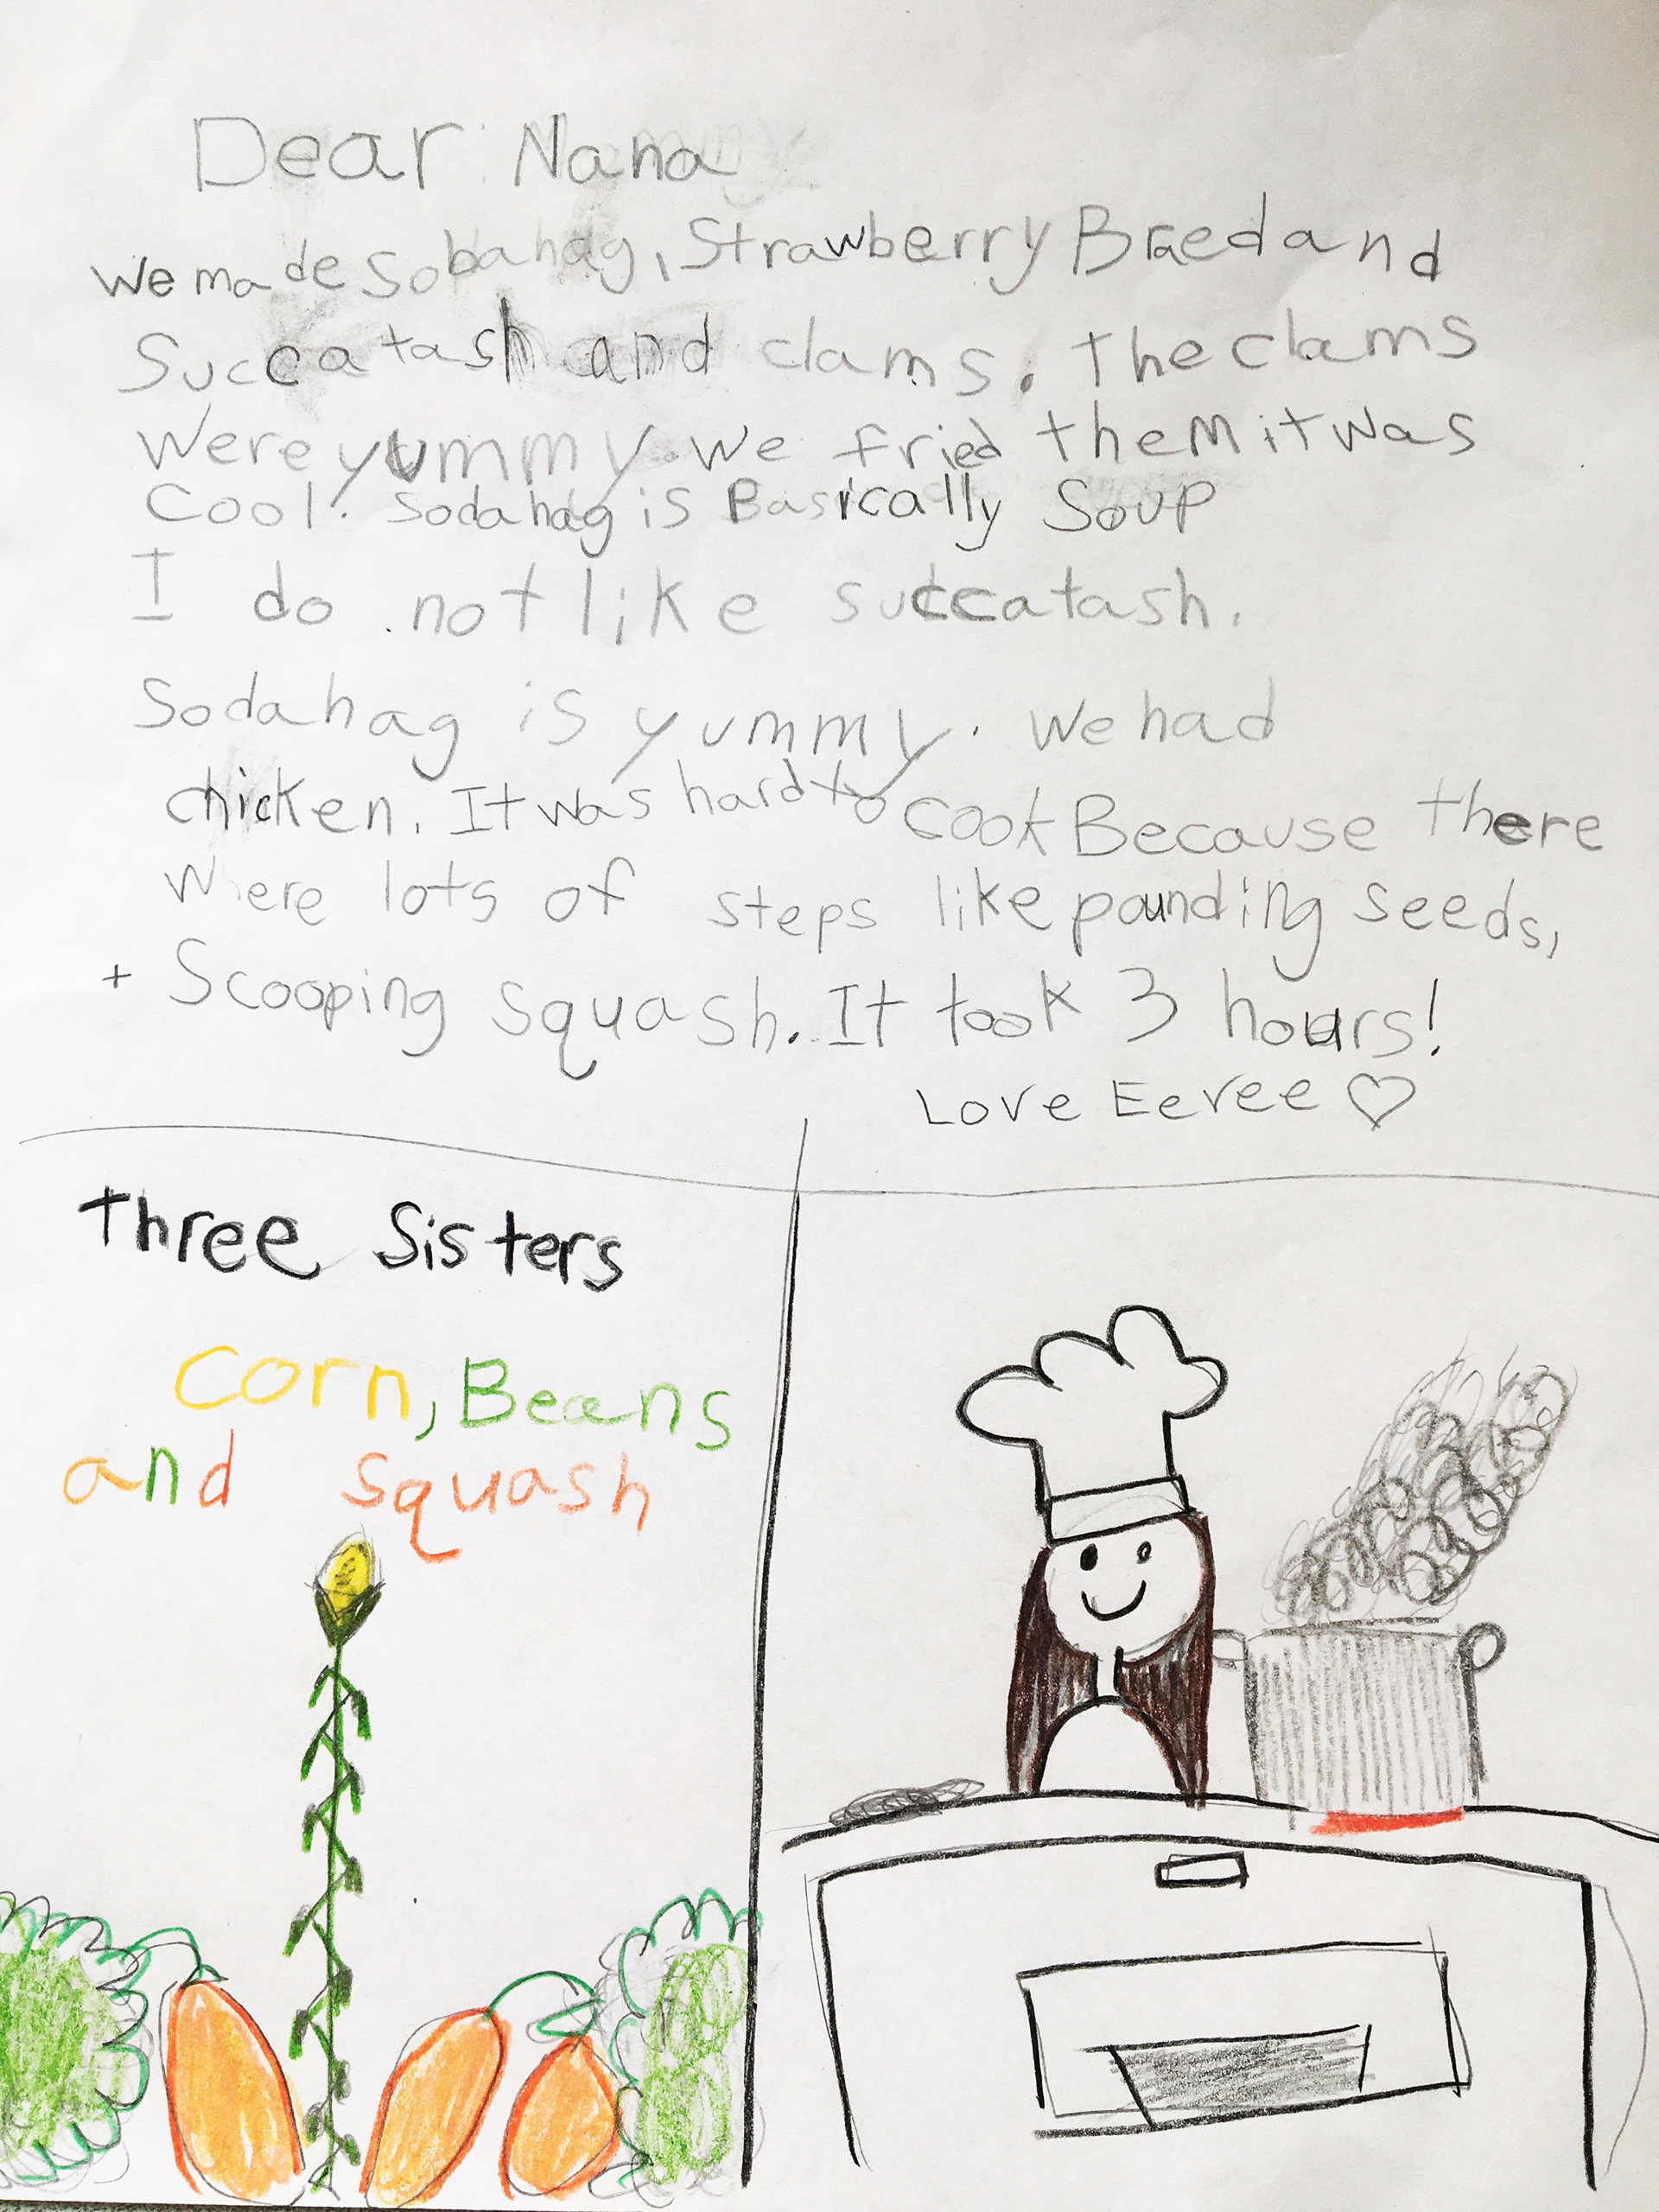 Dear Nana
we made Sobahag, Strawberry Braed and
Succatash and clams. The clams
Were yummy. We fried them it was
Cool. Sodahag is Basically Soup
I do not like succatash.
Sodahag is yummy. We had
chicken. It was hard to cook Because there
Where lots of steps like pounding seeds,
+ Scooping squash. It took 3 hours!
Love Eevee ♡
Three Sisters
Corn, Beans
and squash